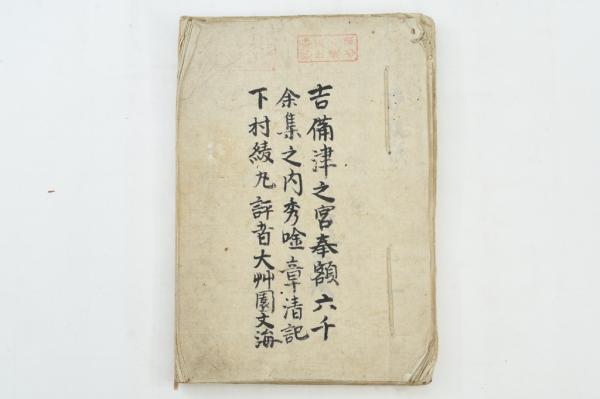 吉備津之宮奉額六千
余集之内秀唫章清記
下村綾丸評者大艸園文海